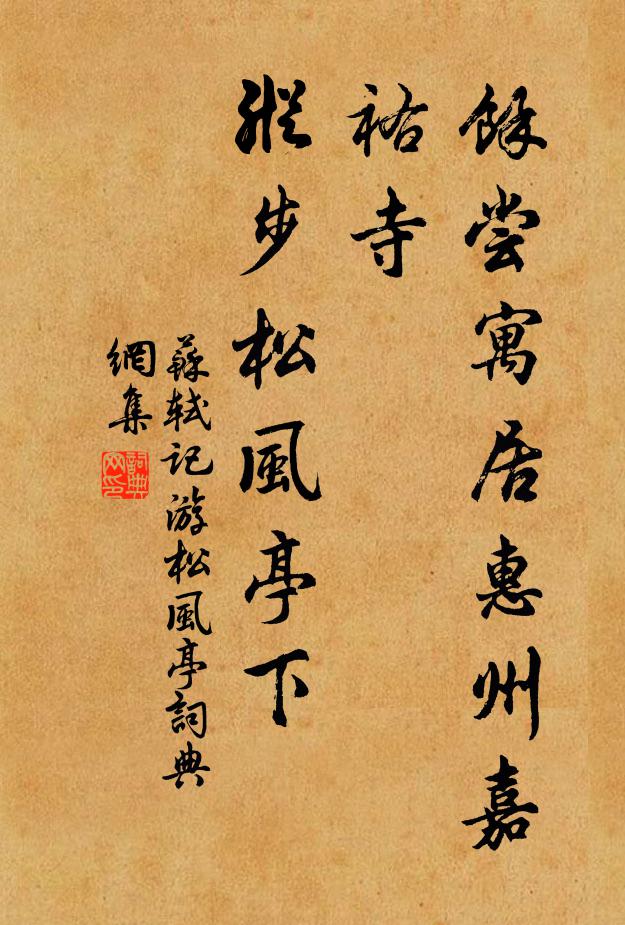 餘尝寓居惠州嘉
祐寺
縱步松風亭下
蘇軾记游松風亭詞典
網集
詞典
网印